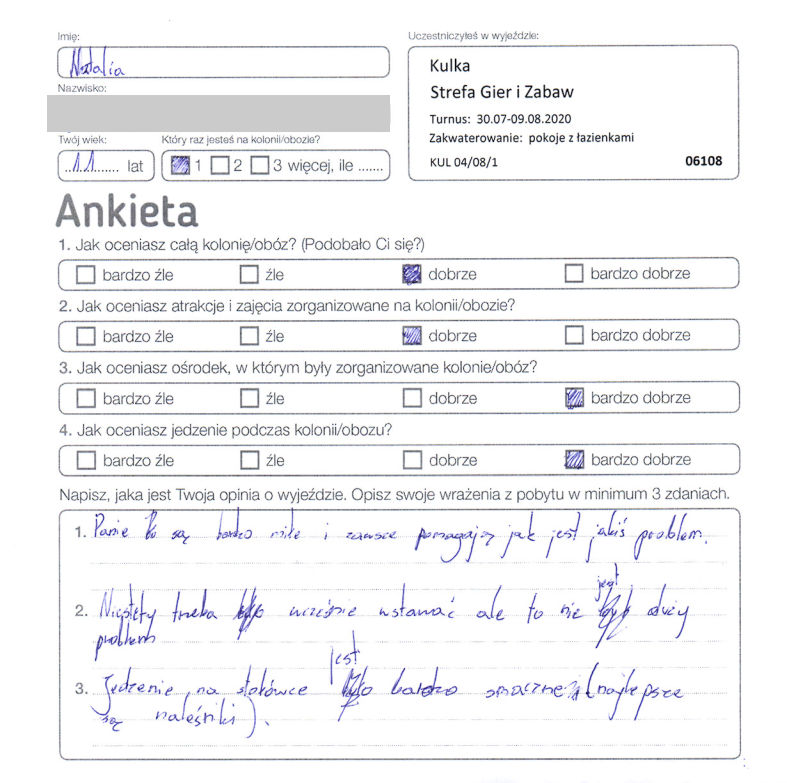 Imię:
Natalia
Nazwisko:
Twój wiek:
11 lat
Który raz jesteś na kolonii/obozie?
1 2 3 więcej, ile .......
Uczestniczyłeś w wyjeździe:
Kulka
Strefa Gier i Zabaw
Turnus: 30.07-09.08.2020
Zakwaterowanie: pokoje z łazienkami
KUL 04/08/1 06108
Ankieta
1. Jak oceniasz całą kolonię/obóz? (Podobało Ci się?)
bardzo źle źle dobrze bardzo dobrze
2. Jak oceniasz atrakcje i zajęcia zorganizowane na kolonii/obozie?
bardzo źle źle dobrze bardzo dobrze
3. Jak oceniasz ośrodek, w którym były zorganizowane kolonie/obóz?
bardzo źle źle dobrze bardzo dobrze
4. Jak oceniasz jedzenie podczas kolonii/obozu?
bardzo źle źle dobrze bardzo dobrze
Napisz, jaka jest Twoja opinia o wyjeździe. Opisz swoje wrażenia z pobytu w minimum 3 zdaniach.
1. Panie są bardzo miłe i zawsze pomagają jak jest jakiś problem.
2. Niestety trzeba wcześnie wstawać ale to nie jest duży
problem
3. Jedzenie na stołówce jest bardzo smaczne (najlepsze
są naleśniki).